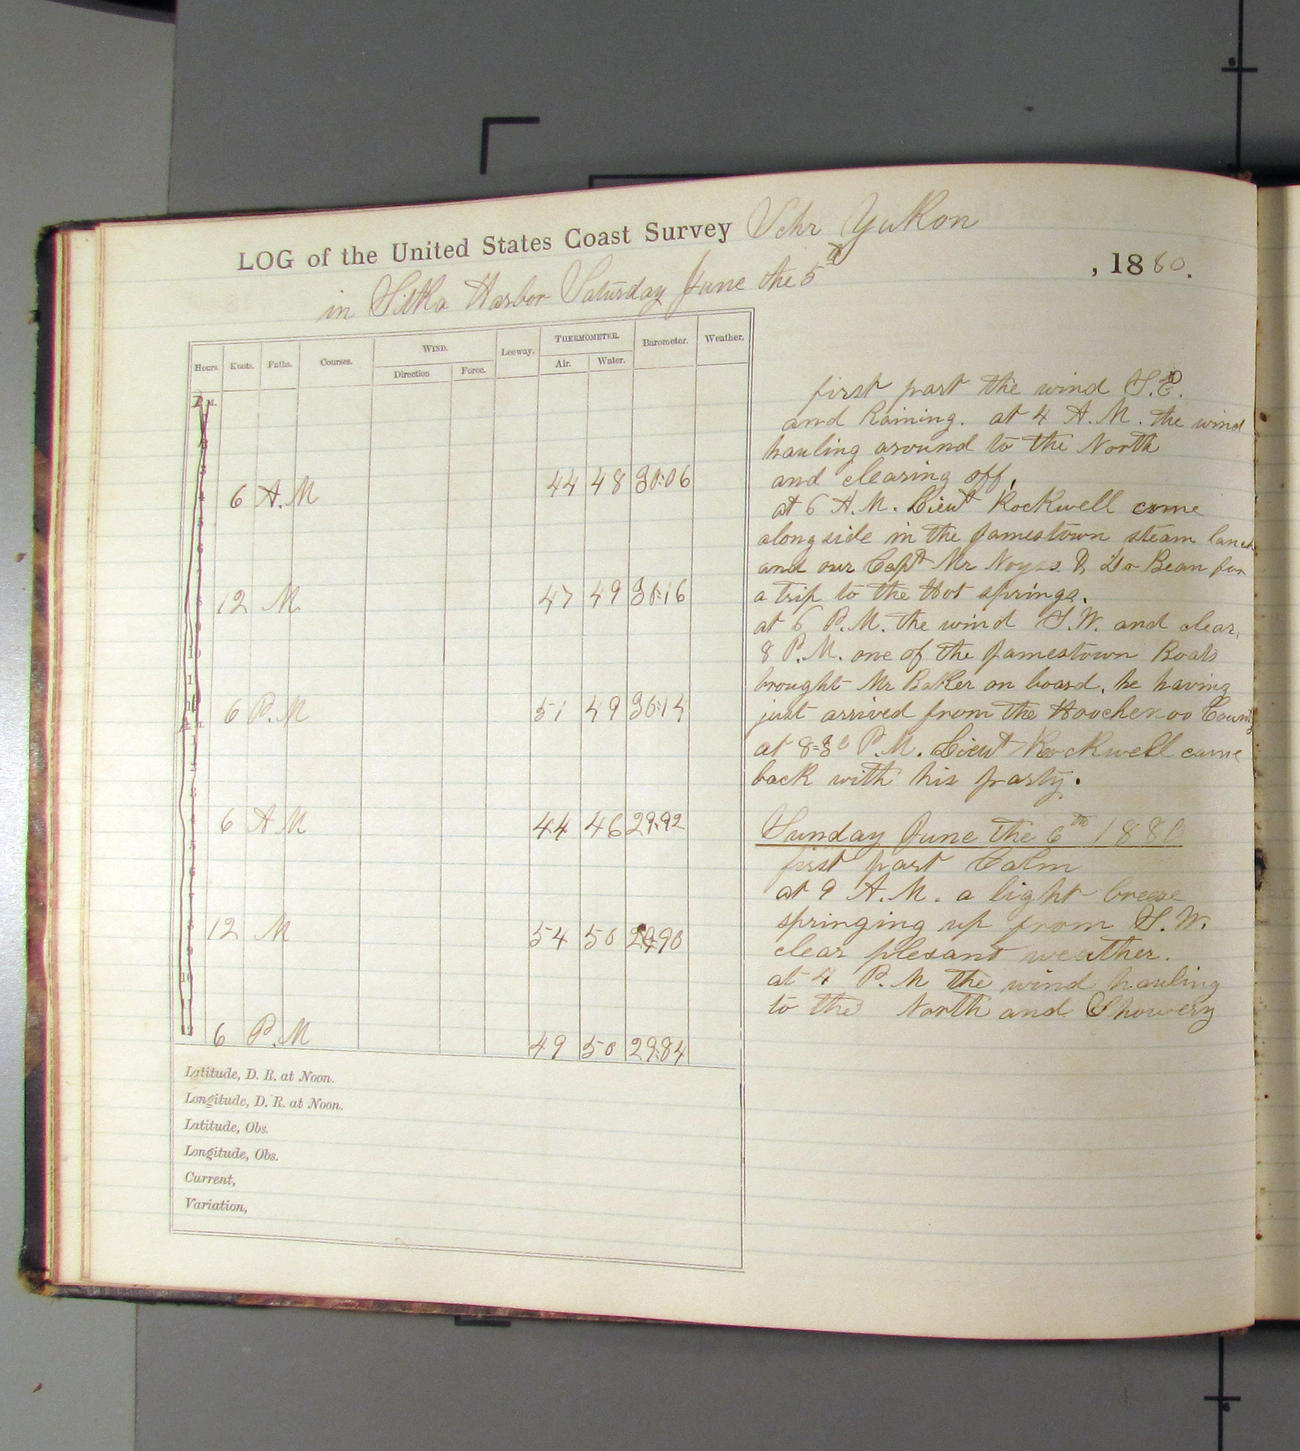 LOG of the United States Coast Survey Schr Yukon
in Sitka Harbor Saturday June the 5th , 1880.
Hours. Knots. Faths. Courses. WIND. Leeway. THERMOMETER. Barometer. Weather.
Direction Force. Air. Water.
6 A.M 44 48 30.06
12 M 47 49 30.16
6 P.M 51 49 30.14
6 A M 44 46 29.92
12 M 54 50 29.90
6 P.M 49 50 29.84
Latitude, D. R. at Noon.
Longitude, D. R. at Noon.
Latitude, Obs.
Longitude, Obs.
Current,
Variation,
first part the wind S.E.
and Raining. at 4 A.M. the wind
hauling around to the North
and clearing off,
at 6 A.M. Lieut Rockwell come
along side in the Jamestown steam
and our Capt Mr Noyes & Dr Bean for
a trip to the Hot springs.
at 6 P.M. the wind S.W. and clear,
8 P.M. one of the Jamestown Boats
brought Mr Baker on board, he having
just arrived from the
at 8-30 P.M. Lieut Rockwell came
back with his party.
Sunday June the 6th 1880
first part Calm
at 9 A.M. a light breeze
springing up from S.W.
clear plesant weather.
at 4 P.M the wind hauling
to the North and Showery